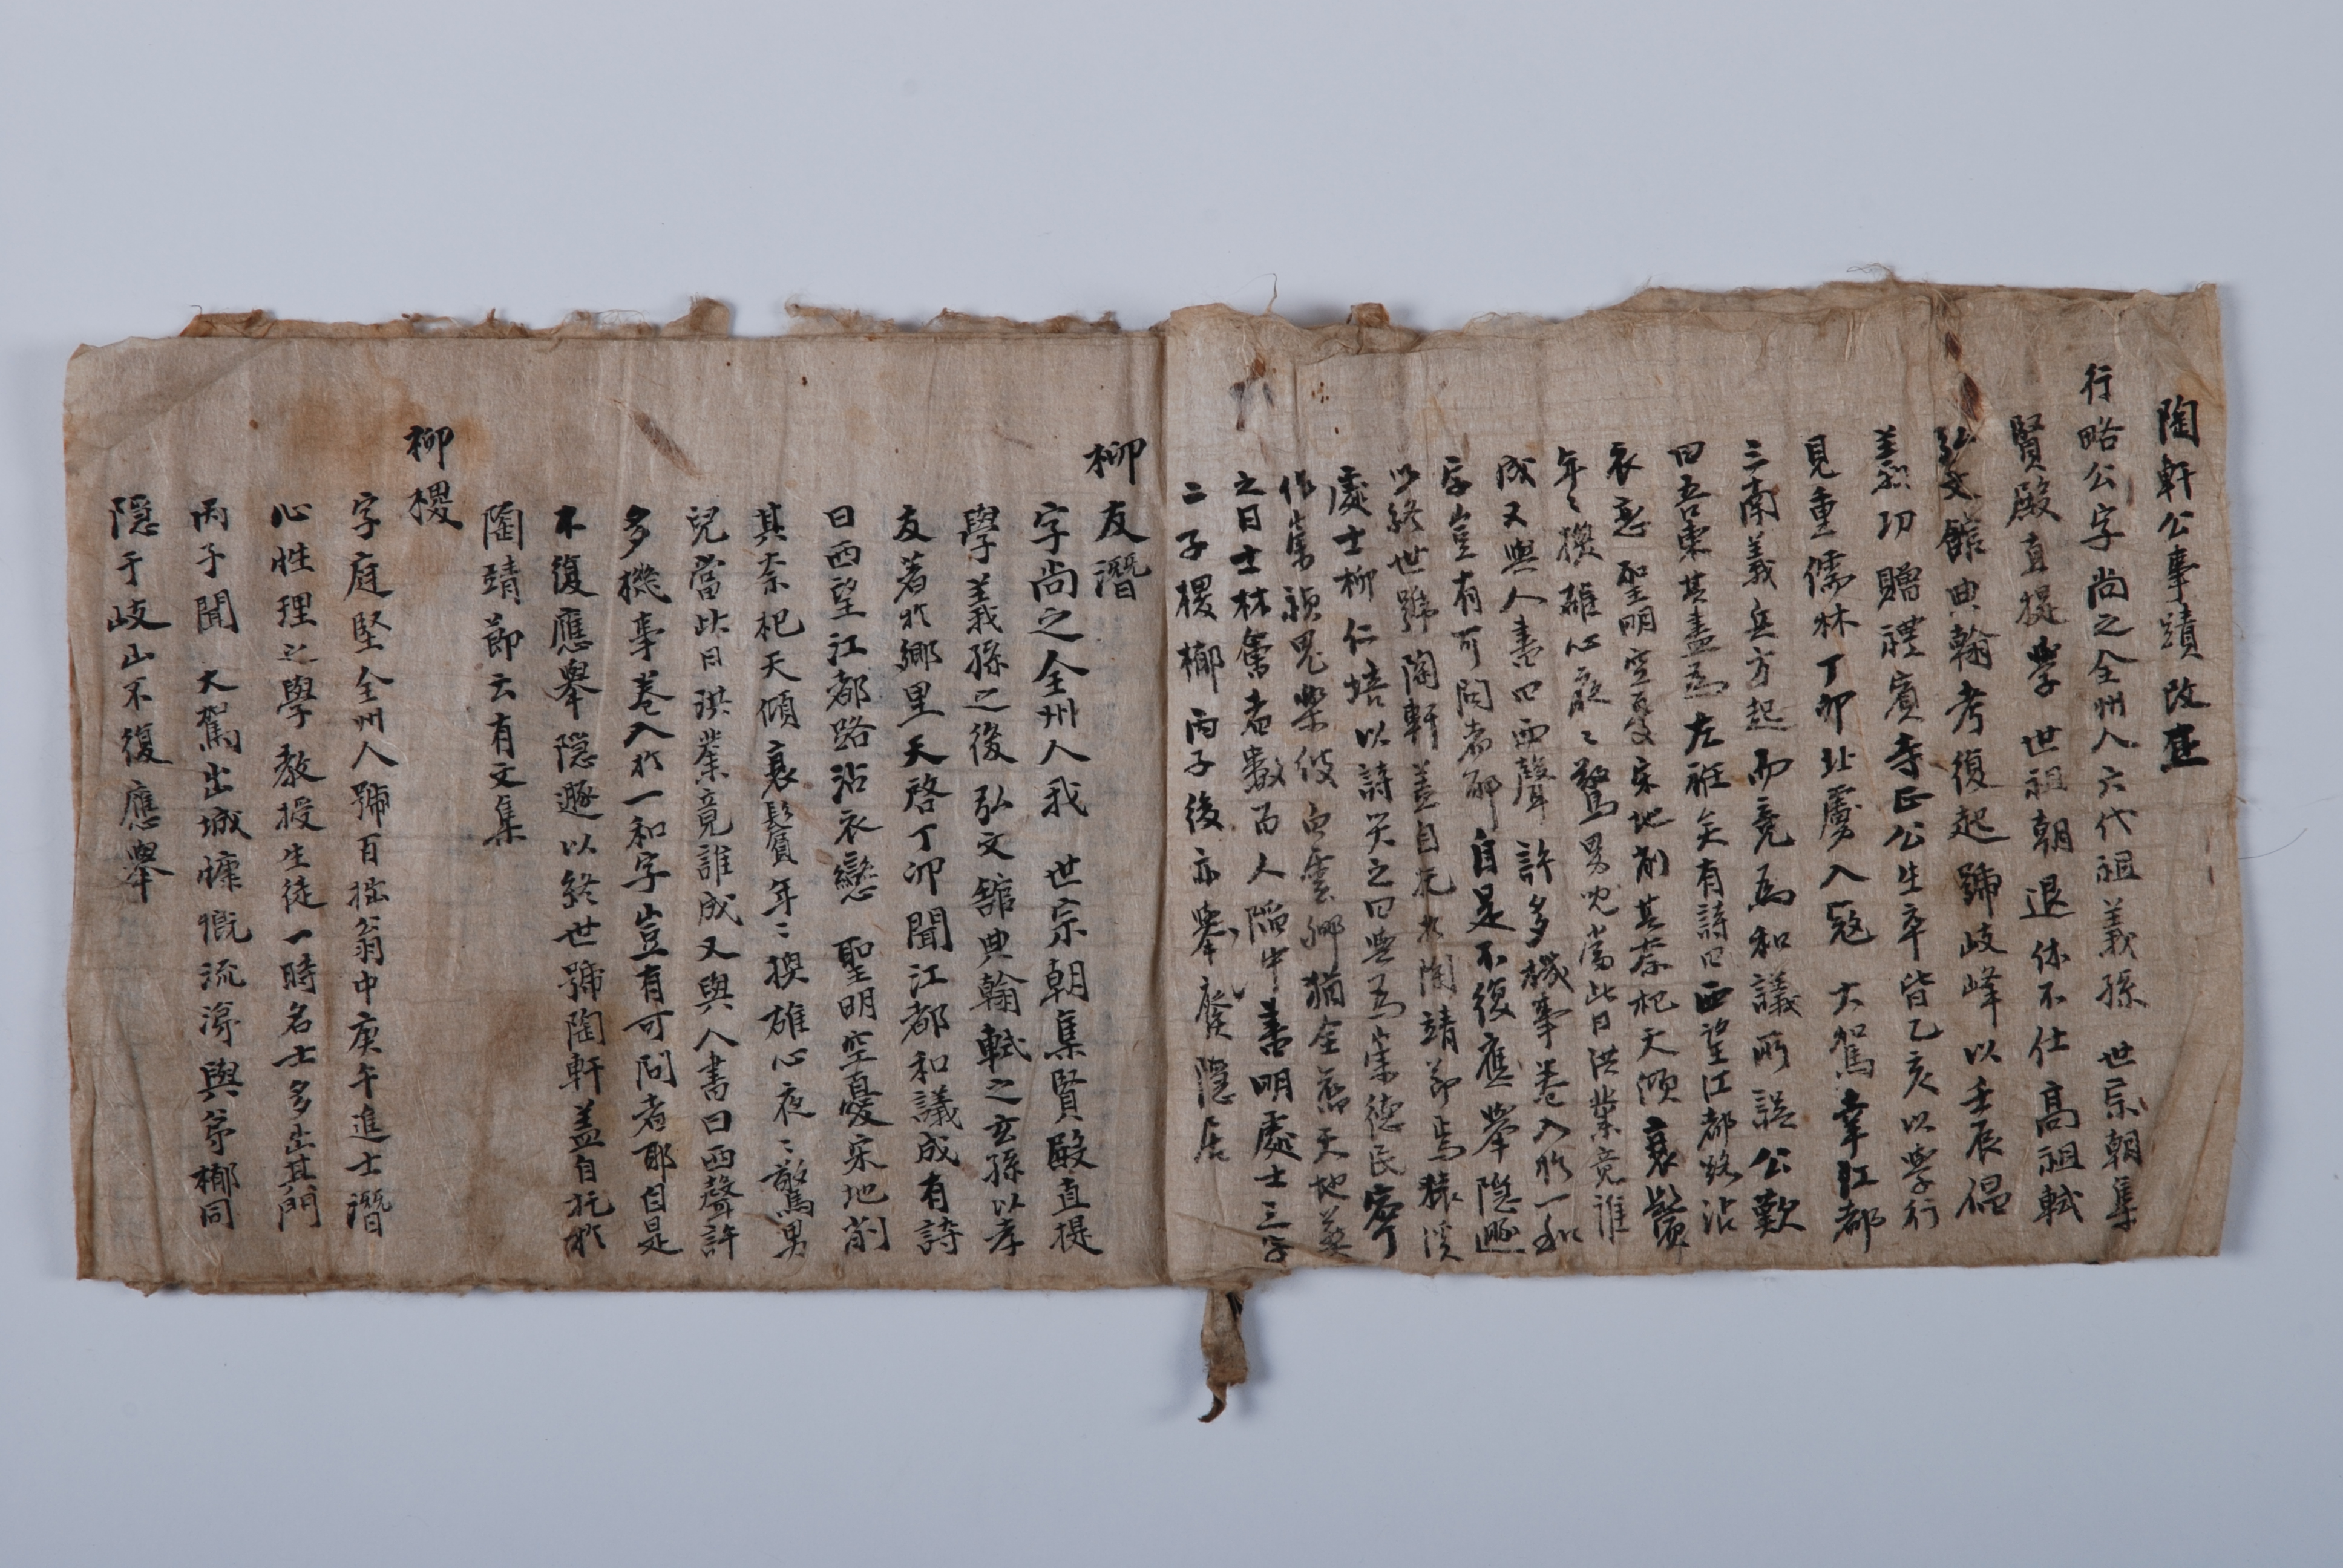 陶軒公事蹟改正
行略公字尚之全州人六代祖義孫 世宗朝集
賢殿直提學 世祖朝退休不仕高祖軾
弘文館典翰考復起號岐峰以壬辰倡
義功贈禮賓寺正公生卒皆乙亥以學行
見重儒林丁卯北虜入寇 大駕幸江都
三南義兵方起而竟爲和議所誤公歎
曰吾東其盡爲左衽矣有詩曰西望江都路沾
衣戀 聖明空憂宋地削其奈杞天傾衰鬢
年〻換雄心夜〻驚男兒當此日洪業竟誰
成又與人書曰西聲許多機事卷入於一和
字豈有可問者耶自是不復應擧隱遯
以終世號陶軒盖自托於陶靖節焉猿溪
處士柳仁培以詩哭之曰無爲崇德民寧
作崇禎鬼樂彼白雲鄕猶全舊天地葬
之日士林奮者數百人陷中善明處士三字
二子㮨楖丙子後亦擧廢隱居
柳友潛
字尚之全州人我 世宗朝集賢殿直提
學義孫之後弘文館典翰軾之玄孫以孝
友著於鄕里天啓丁卯聞江都和議成有詩
曰西望江都路沾衣戀 聖明空憂宋地削
其奈杞天傾衰鬢年〻換雄心夜〻驚男
兒當此日洪業竟誰成又與人書曰西聲許
多機事卷入於一和字豈有可問者耶自是
不復應擧隱遯以終世號陶軒盖自托於
陶靖節云有文集
柳㮨
字庭堅全州人號百拙翁中庚午進士潛
心性理之學教授生徒一時名士多出其門
丙子聞 大駕出城慷慨流涕與弟楖同
隱于岐山不復應擧